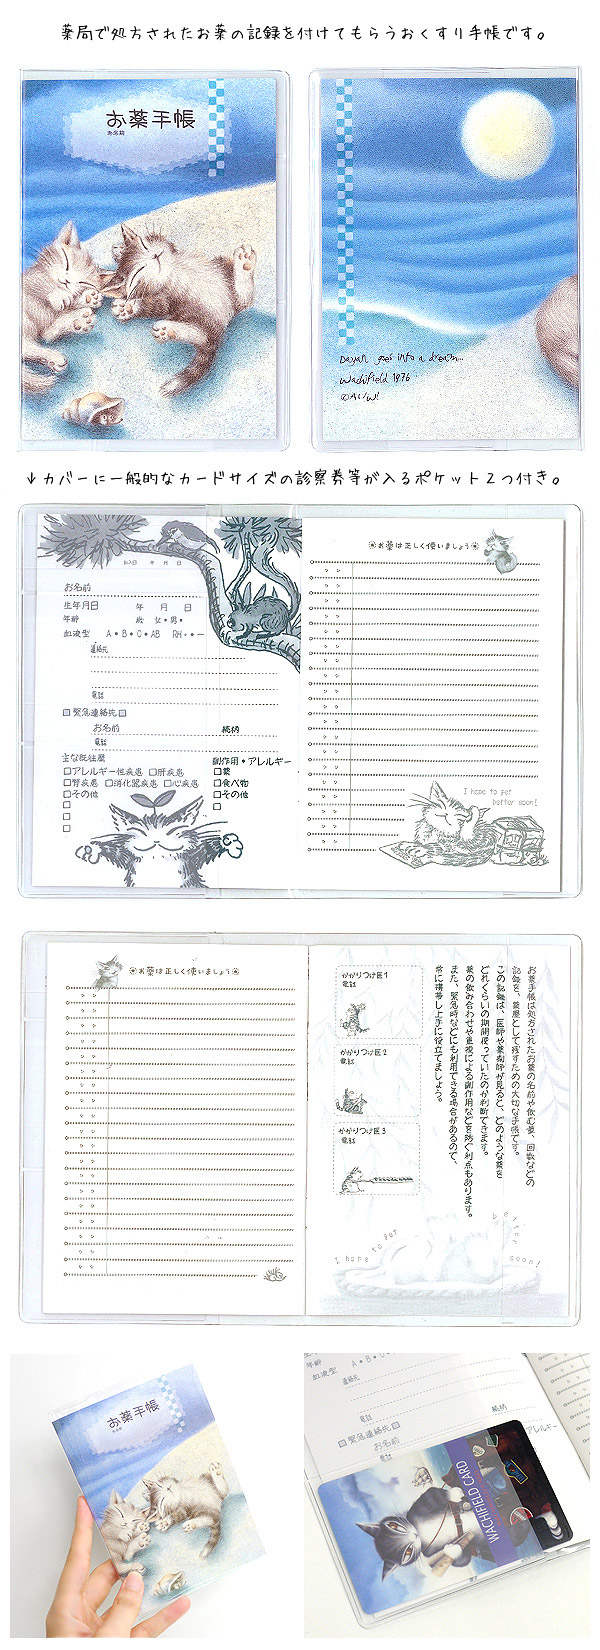 薬局で処方されたお薬の記録を付けてもらうおくすり手帳です。
お薬手帳
お名前
Dayan goes into a dream...
Wachifield 1976
↓カバーに一般的なカードサイズの診察券等が入るポケット2つ付き。
記入日　年　月　日
お名前
生年月日　年　月　日
年齢　歳　女・男・
血液型　A・B・O・AB　RH+・ー
連絡先
電話
緊急連絡先
お名前　続柄
電話
主な既往歴
□アレルギー性疾患 □肝疾患
□腎疾患 □消化器疾患 □心疾患
□その他
□
□
□
副作用・アレルギー
□薬
□食べ物
□その他
□
お薬は正しく使いましょう
I hope to get
better soon!
お薬は正しく使いましょう
かかりつけ医1
電話
かかりつけ医2
電話
かかりつけ医3
電話
お薬手帳は処方されたお薬の名前や飲む量、回数などの
記録を、薬歴として残すための大切な手帳です。
この記録は、医師や薬剤師が見ると、どのような薬を
どれくらいの期間使っていたのか判断できます。
薬の飲み合わせや重複による副作用などを防ぐ利点もあります。
また、緊急時などにも利用できる場合があるので、
常に携帯し上手に役立てましょう。
I hope to get better soon!
お薬手帳
お名前
年齢
血液型　A・B・O
連絡先
電話
緊急連絡先
続柄
お名前
アレルギー
WACHIFIELD CARD